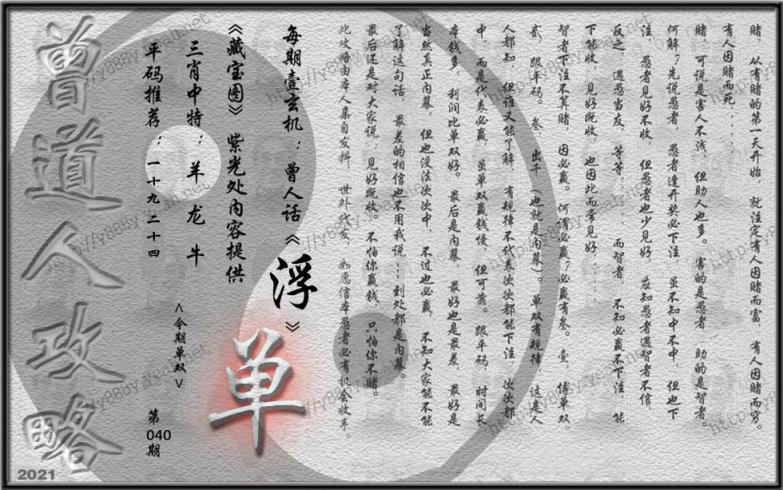 赌，从有赌的第一天开始，就注定有人因赌而富，有人因赌而穷。
有人因赌而死……
赌，可说是害人不浅，但助人也多。害的是愚者，助的是智者。
何解？先说愚者，愚者逢开奖必下注，虽不知中不中，但也下
注，愚者见好不收，但愚者也少见好，应知愚者遇智者不信，
反之，遇愚当友，等等……而智者，不知必赢不下注，能
下能收，见好既收，也因此而常见好……
智者下注不算赌，因必赢。何谓必赢？必赢有叁。壹，博单双
贰，跟平码。叁，出千（也就是内幕）。单双有规律，这是人
人都知，但谁又能了解，有规律不代表次次都能下注，次次都
中，而是代表必赢，虽单双赢钱慢，但可靠。跟平码，时间长
本钱多，利润比单双好。最后是内幕，最好也是最差，最好是
当然真正内幕，但也没法次次中，不过也必赢，不知大家能不能
了解这句话，最差的相信也不用我说……到处都是内幕。
最后还是对大家说：见好既收。不怕你赢钱，只怕你不赌。
此攻略由本人亲自发料，世外代发，如愿信本愚者必有机会收丰。
每期壹玄机：曾人话《浮》
《藏宝图》紫光处内容提供
三肖中特：羊 龙 牛
平码推荐：一十九 二十四
<今期单双>
单
第
040
期
曾道人攻略
2021